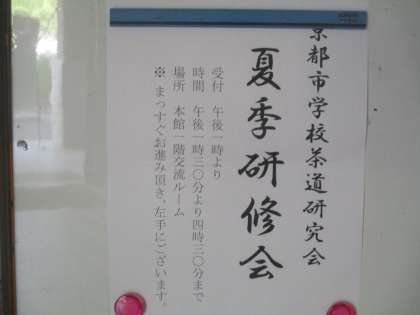 京都市学校茶道研究会
夏季研修会
受付　午後一時より
時間　午後一時三〇分より四時三〇分まで
場所　本館一階交流ルーム
※まっすぐお進み頂き、左手にございます。